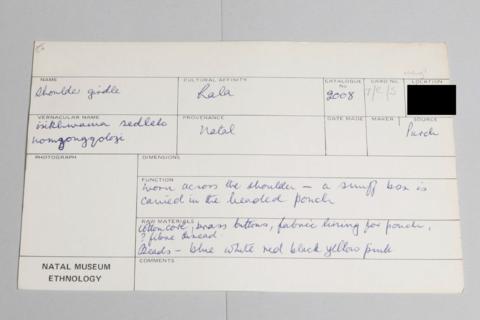 NAME
shoulder girdle
CULTURAL AFFINITY
Lala
CATALOGUE No
2008
CARD NO.
LOCATION
VERNACULAR NAME
isikhwama sedlelo
nomgongqolozi
PROVENANCE
Natal
DATE MADE
MAKER
SOURCE
Purch
PHOTOGRAPH
DIMENSIONS
FUNCTION
worn across the shoulder – a snuff box is
carried in the beaded pouch
RAW MATERIALS
cotton cord, brass buttons, fabric lining for pouch,
? fibre thread
Beads – blue white red black yellow pink
COMMENTS
NATAL MUSEUM
ETHNOLOGY